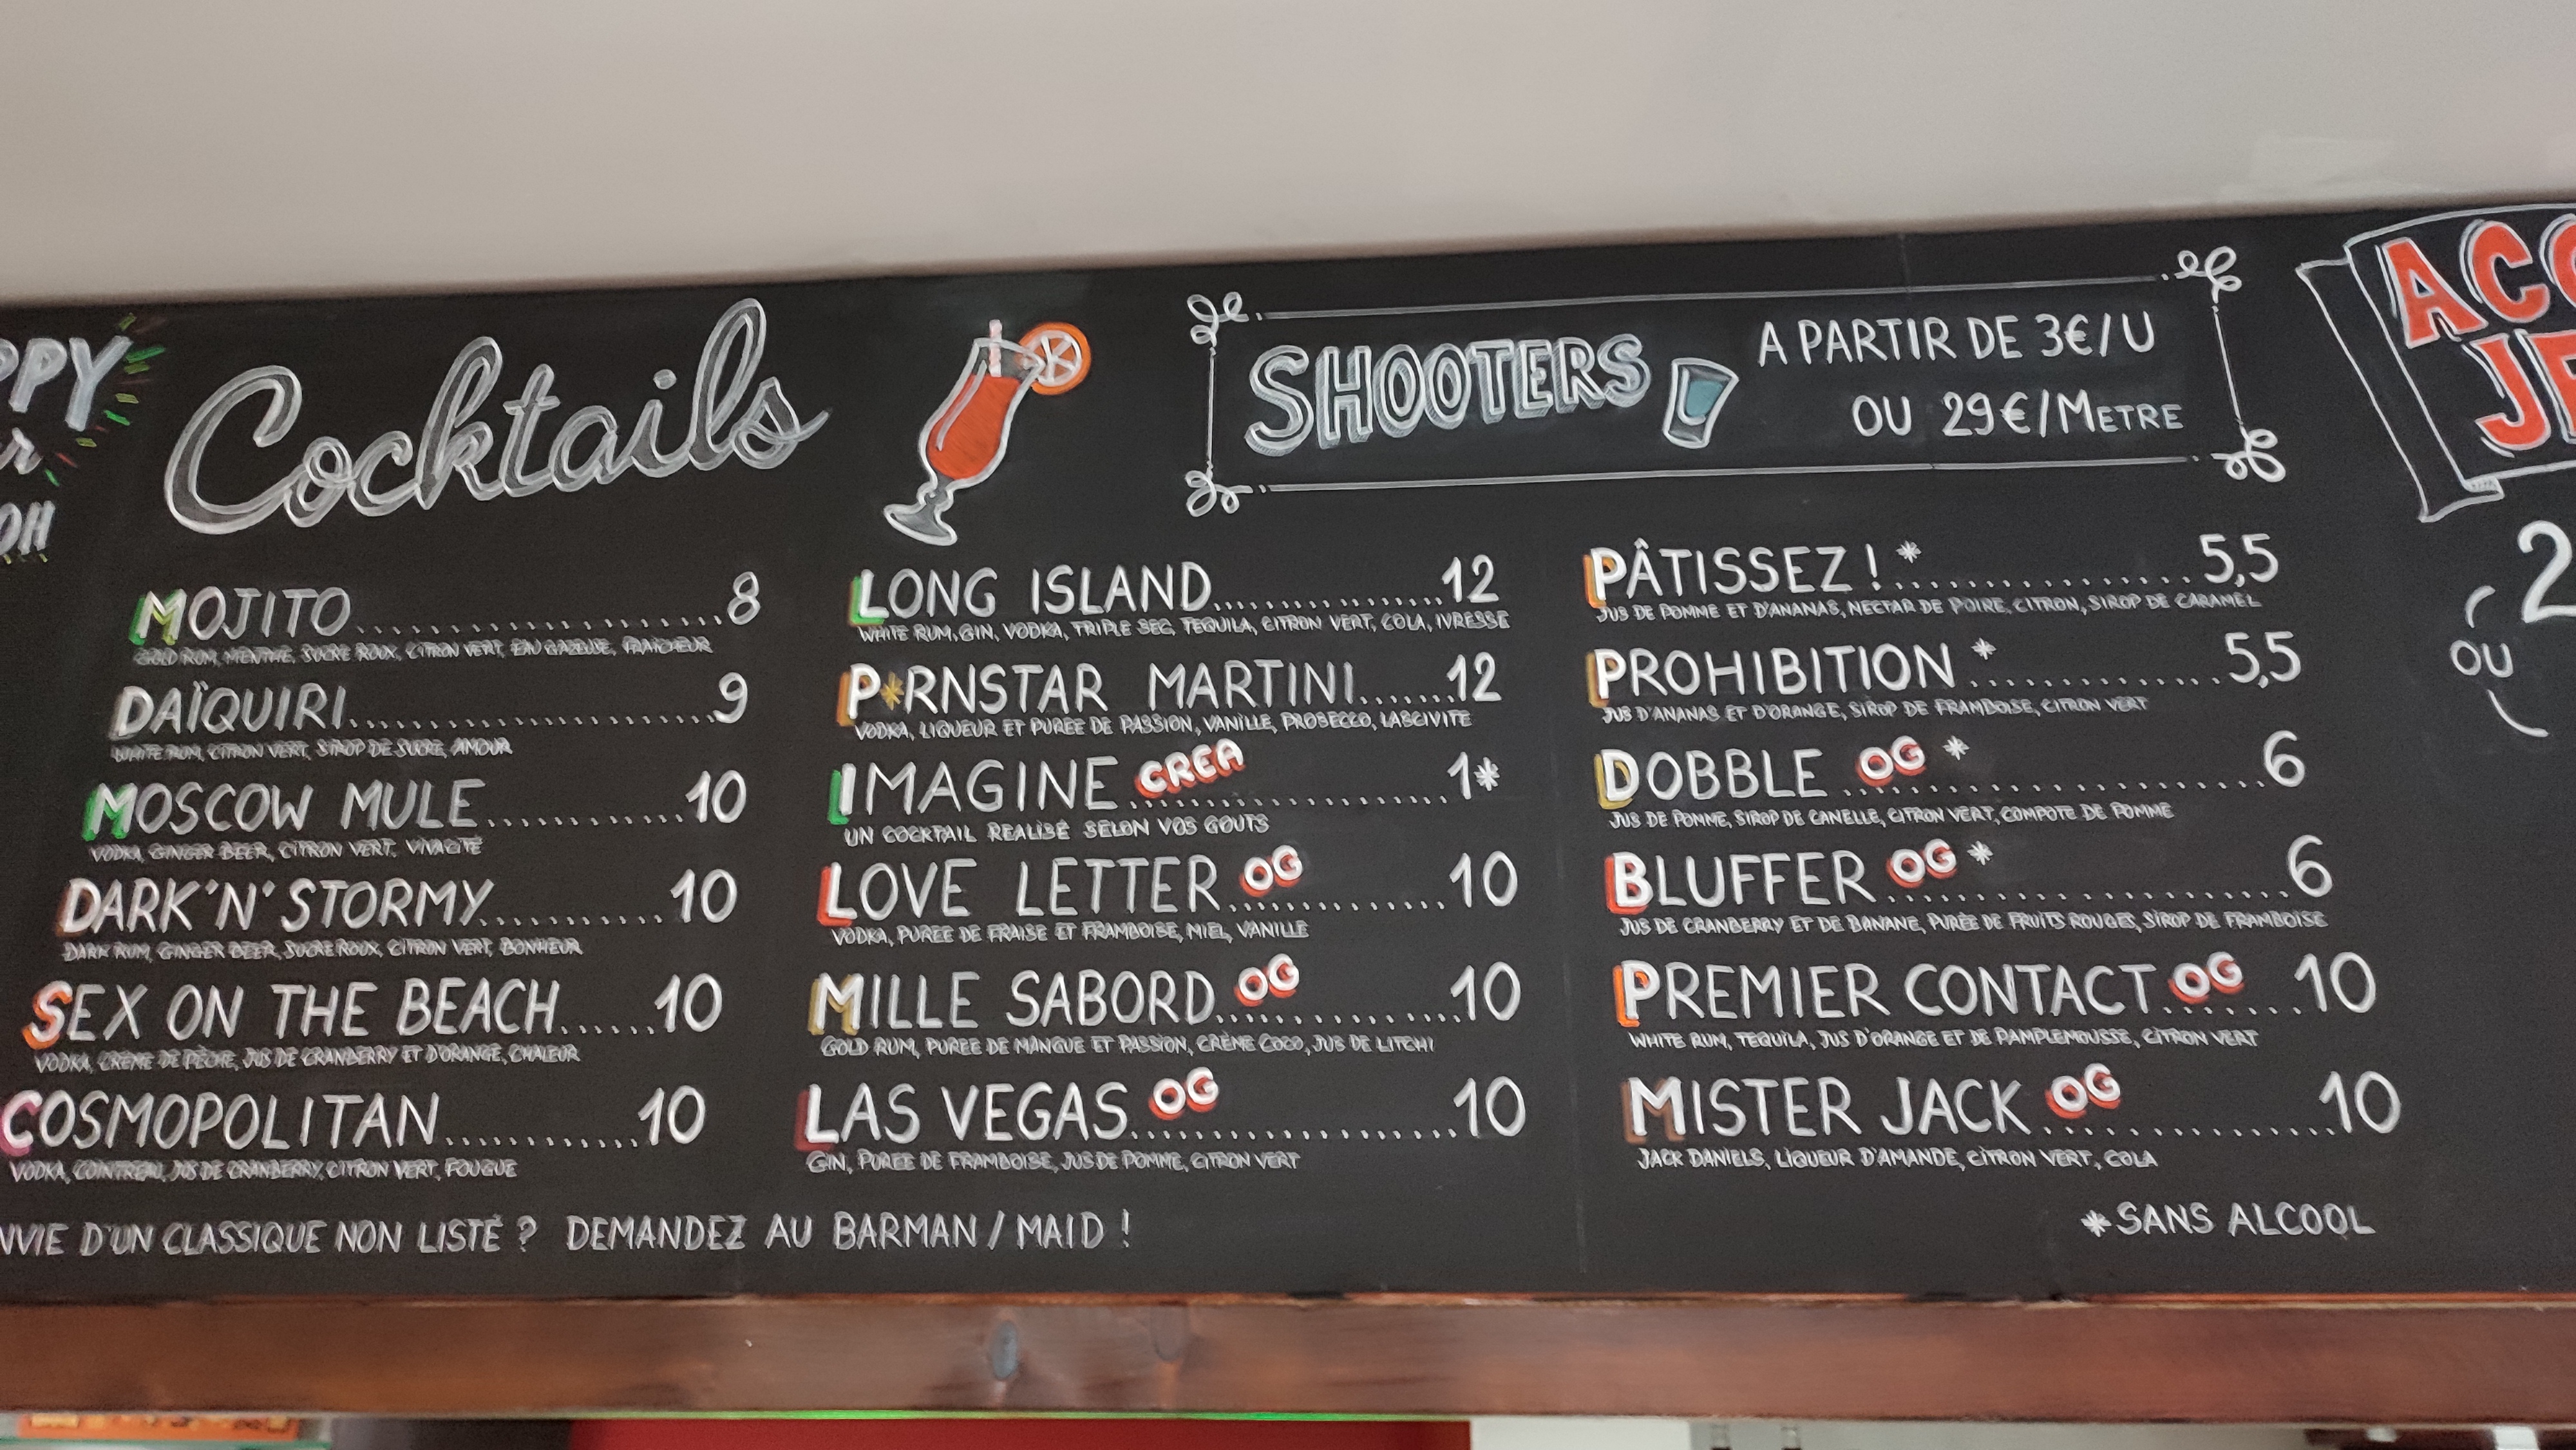 PPY
Cocktails
SHOOTERS
A PARTIR DE 3€/U
OU 29€/METRE
MOJITO..........8
GOLD RUM, MENTHE, SUCRE ROUX, CITRON VERT, EAU GAZEUSE, FRAÎCHEUR
DAÏQUIRI..........9
WHITE RUM, CITRON VERT, SIROP DE SUCRE, AMOUR
MOSCOW MULE..........10
VODKA, GINGER BEER, CITRON VERT, VIVACITÉ
DARK'N'STORMY..........10
DARK RUM, GINGER BEER, SUCRE ROUX, CITRON VERT, BONHEUR
SEX ON THE BEACH......10
VODKA, CRÈME DE PÊCHE, JUS DE CRANBERRY ET D'ORANGE, CHALEUR
COSMOPOLITAN..........10
VODKA, COINTREAU, JUS DE CRANBERRY, CITRON VERT, FOUGUE
LONG ISLAND..........12
WHITE RUM, GIN, VODKA, TRIPLE SEC, TEQUILA, CITRON VERT, COLA, IVRESSE
P*RNSTAR MARTINI......12
VODKA, LIQUEUR ET PUREE DE PASSION, VANILLE, PROSECCO, LASCIVITE
IMAGINE CREA..........1*
UN COCKTAIL REALISÉ SELON VOS GOUTS
LOVE LETTER OG..........10
VODKA, PUREE DE FRAISE ET FRAMBOISE, MIEL, VANILLE
MILLE SABORD OG..........10
GOLD RUM, PUREE DE MANGUE ET PASSION, CRÈME COCO, JUS DE LITCHI
LAS VEGAS OG..........10
GIN, PUREE DE FRAMBOISE, JUS DE POMME, CITRON VERT
PÂTISSEZ ! *..........5,5
JUS DE POMME ET D'ANANAS, NECTAR DE POIRE, CITRON, SIROP DE CARAMEL
PROHIBITION *..........5,5
JUS D'ANANAS ET D'ORANGE, SIROP DE FRAMBOISE, CITRON VERT
DOBBLE OG *..........6
JUS DE POMME, SIROP DE CANELLE, CITRON VERT, COMPOTE DE POMME
BLUFFER OG *..........6
JUS DE CRANBERRY ET DE BANANE, PURÉE DE FRUITS ROUGES, SIROP DE FRAMBOISE
PREMIER CONTACT OG......10
WHITE RUM, TEQUILA, JUS D'ORANGE ET DE PAMPLEMOUSSE, CITRON VERT
MISTER JACK OG..........10
JACK DANIELS, LIQUEUR D'AMANDE, CITRON VERT, COLA
NVIE D'UN CLASSIQUE NON LISTÉ ? DEMANDEZ AU BARMAN / MAID !
*SANS ALCOOL
2
OU